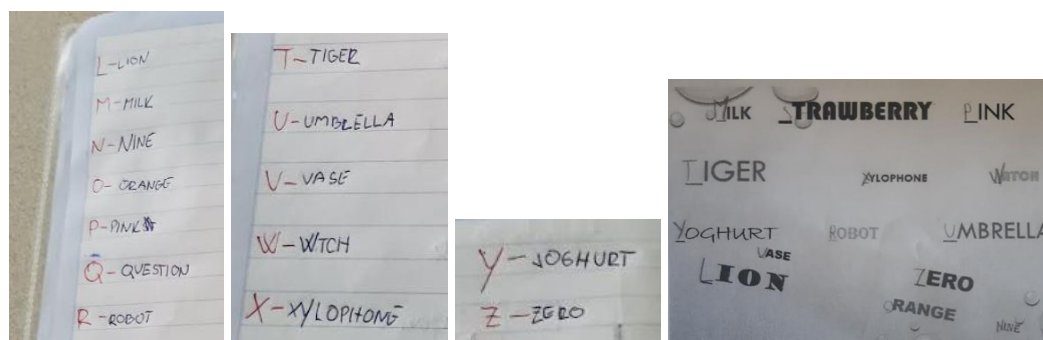 L-LION
M-MILK
N-NINE
O-ORANGE
P-PINK
Q-QUESTION
R-ROBOT
T-TIGER
U-UMBRELLA
V-VASE
W-WTCH
X-XYLOPHONE
Y-JOGHURT
Z-ZERO
MILK STRAWBERRY PINK
TIGER XYLOPHONE WATCH
YOGHURT ROBOT UMBRELLA
VASE
LION ZERO
ORANGE
NINE